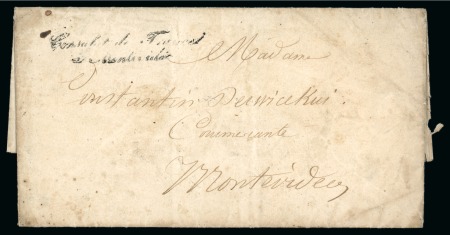 Consulat de France
de Montevideo
Madame
Constantin
Commercante
Montevideo